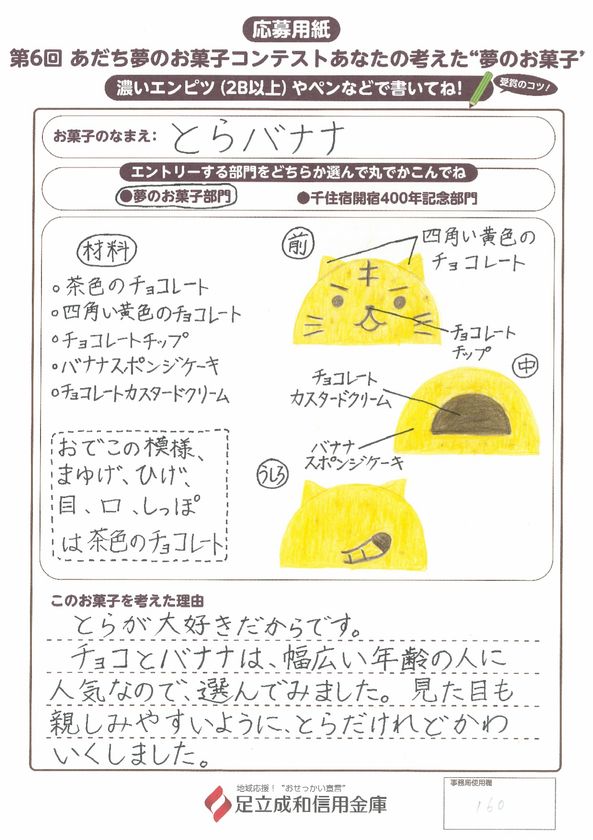 応募用紙
第6回 あだち夢のお菓子コンテストあなたの考えた“夢のお菓子”
濃いエンピツ(2B以上)やペンなどで書いてね!
受賞のコツ!
お菓子のなまえ: とらバナナ
エントリーする部門をどちらか選んで丸でかこんでね
●夢のお菓子部門 ●千住宿開宿400年記念部門
材料
○茶色のチョコレート
○四角い黄色のチョコレート
○チョコレートチップ
○バナナスポンジケーキ
○チョコレートカスタードクリーム
おでこの模様、
まゆげ、ひげ、
目、口、しっぽ
は茶色のチョコレート
前
四角い黄色の
チョコレート
チョコレート
チップ
中
チョコレート
カスタードクリーム
バナナ
スポンジケーキ
うしろ
このお菓子を考えた理由
とらが大好きだからです。
チョコとバナナは、幅広い年齢の人に
人気なので、選んでみました。見た目も
親しみやすいように、とらだけれどかわ
いくしました。
地域応援!“おせっかい宣言”
足立成和信用金庫
事務局使用欄
160